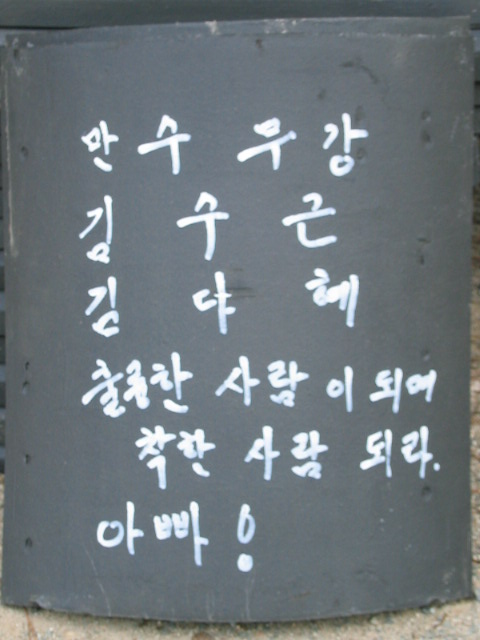 만수 무강
김 수 근
김 댜 혜
출중한 사람이 되며
착한 사람 되라.
아빠!